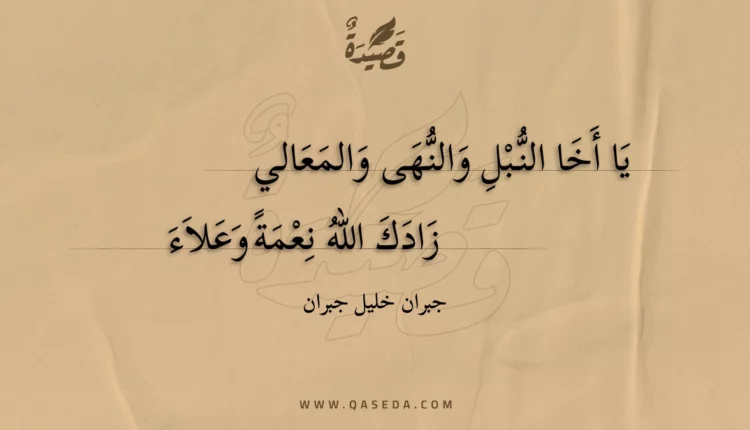 قَصِيدَةٌ
يَا أَخَا النُّبْلِ وَالنُّهَى وَالمَعَالي
زَادَكَ اللهُ نِعْمَةً وَعَلاَءَ
جبران خليل جبران
WWW.QASEDA.COM